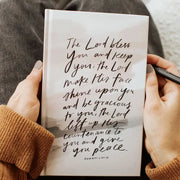 The Lord bless
you and keep
you, the Lord
make His face
shine upon you
and be gracious
to you, the Lord
lift up His
countenance to
you and give
you peace.